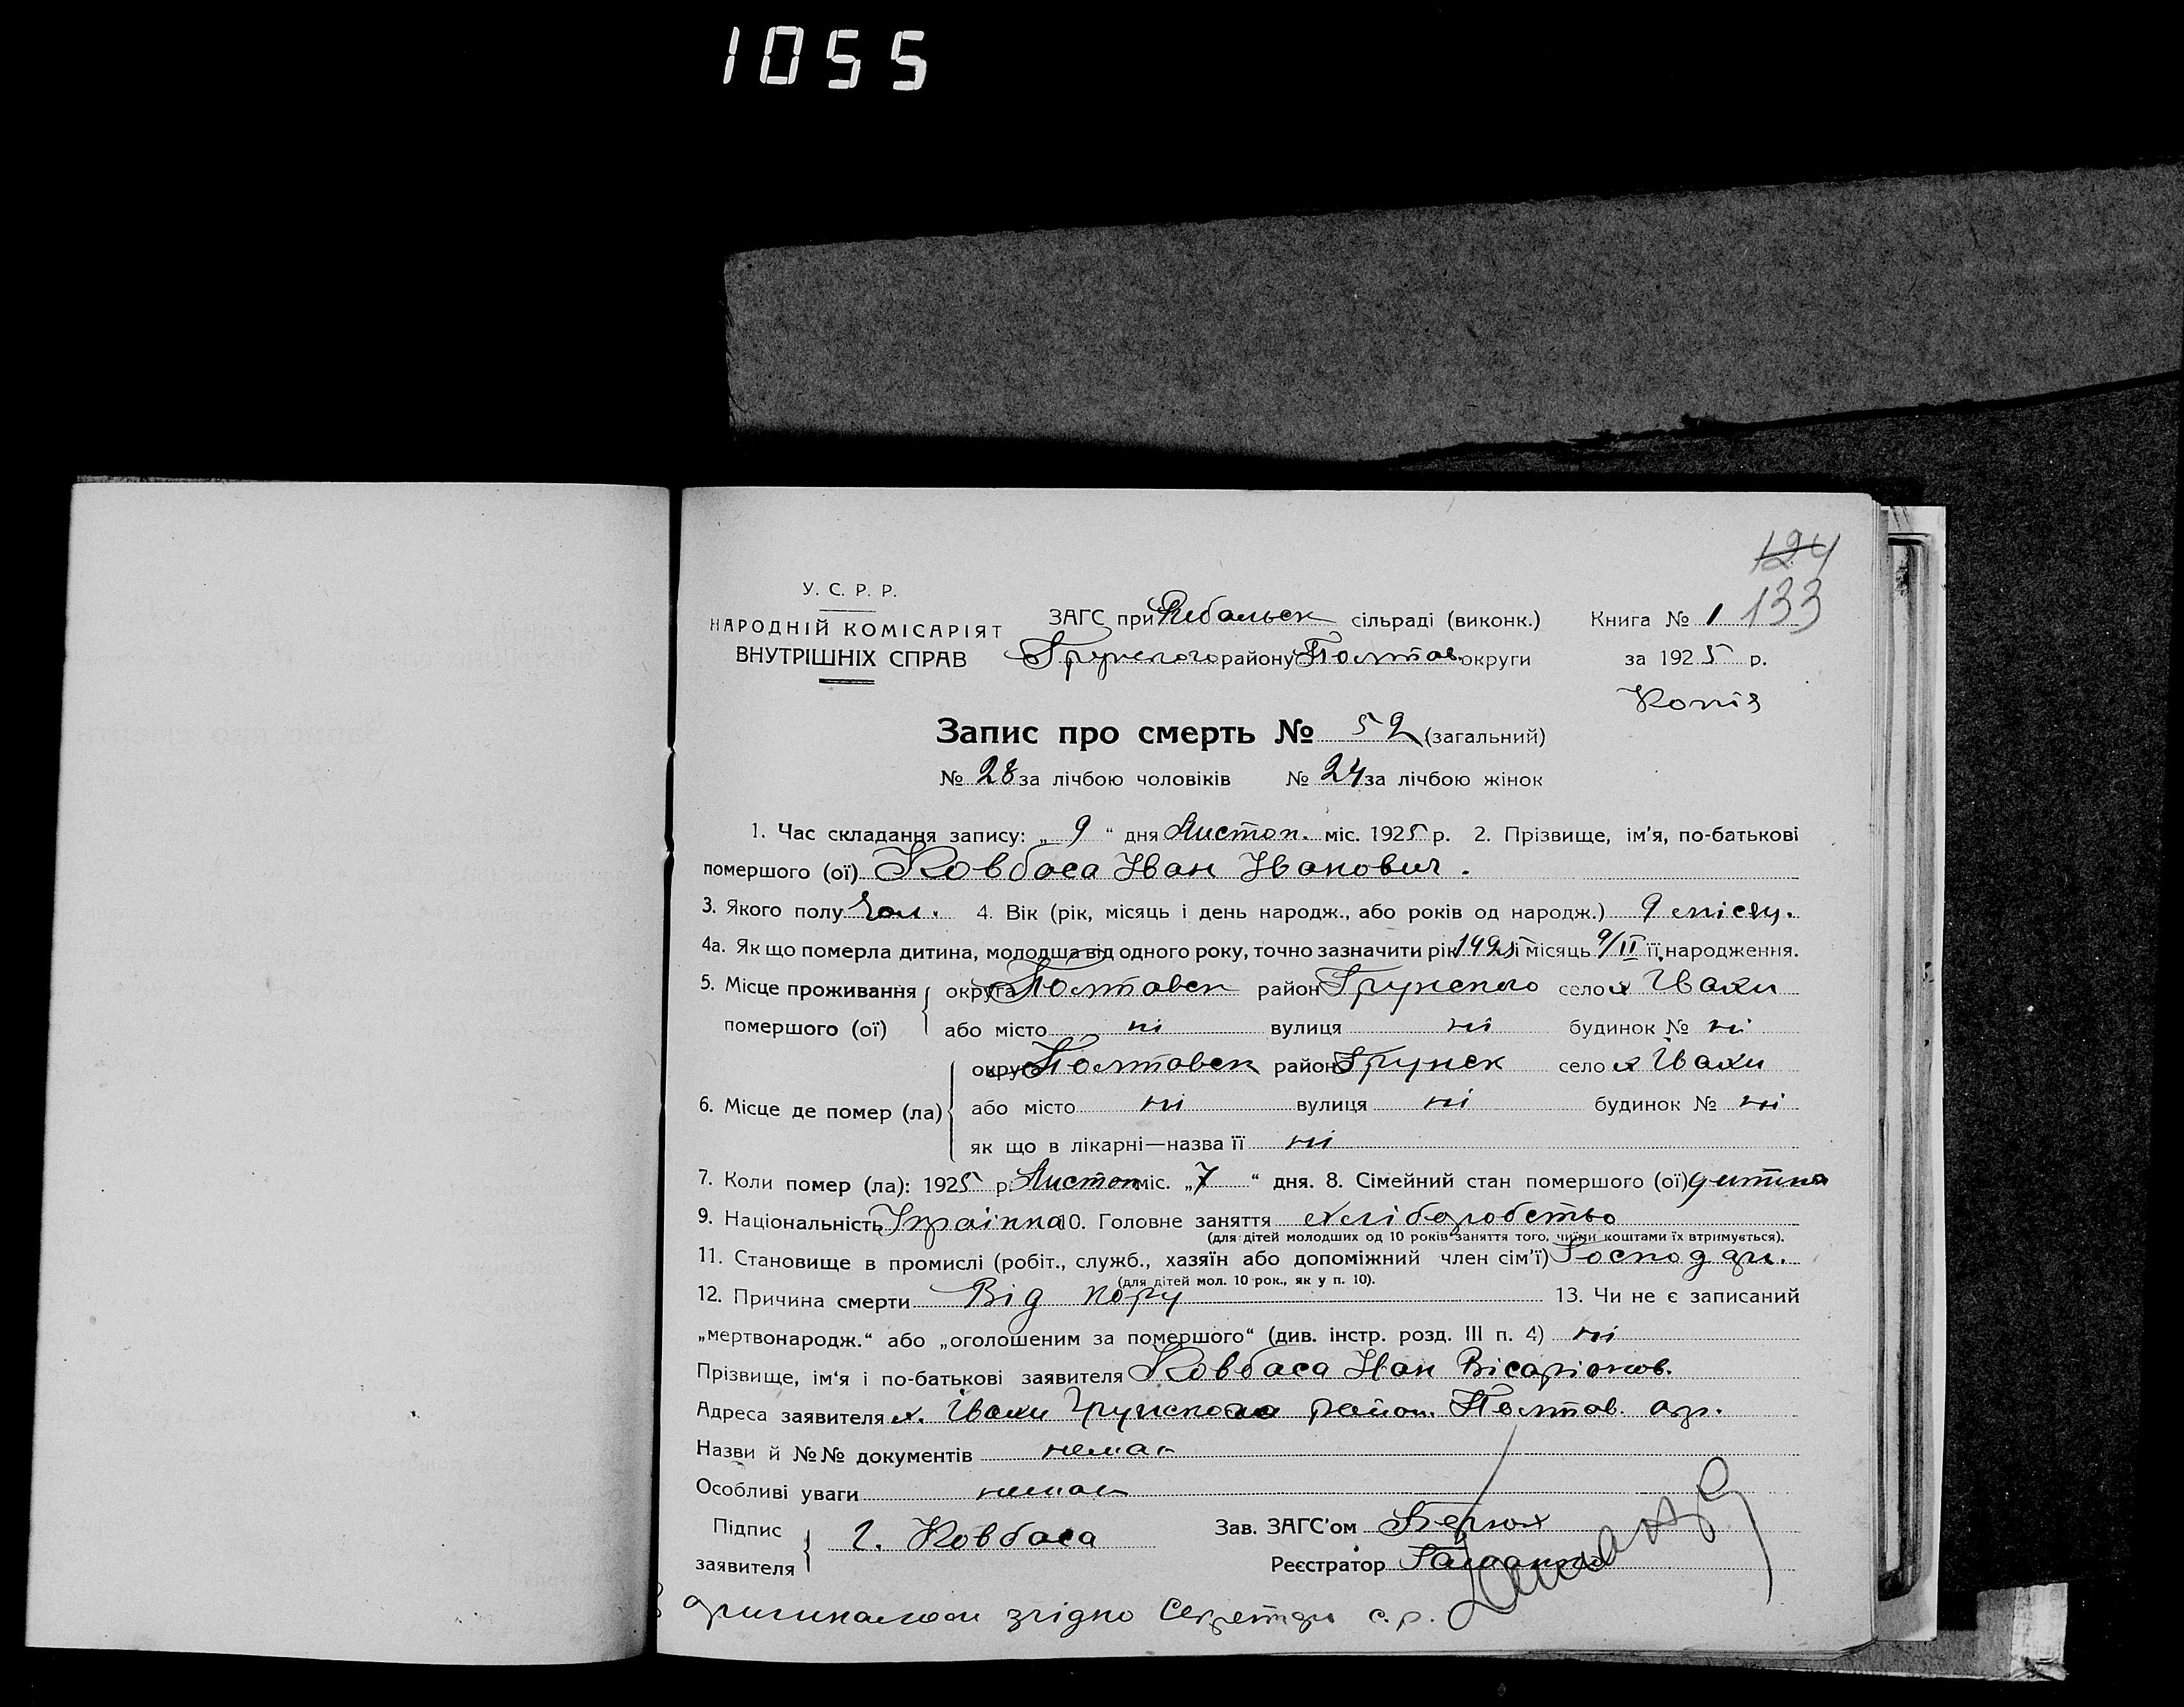 1055
124
133
У. С. Р. Р.
НАРОДНІЙ КОМІСАРІЯТ
ВНУТРІШНІХ СПРАВ
ЗАГС при Рибальск сільраді (виконк.)
Грунського району Полтав. округи
Книга № 1
за 1925 р.
Копія
Запис про смерть № 52 (загальний)
№ 28 за лічбою чоловіків № 24 за лічбою жінок
1. Час складання запису: „ 9 “ дня Листоп. міс. 1925 р. 2. Прізвище, ім'я, по-батькові
помершого (ої) Ковбаса Іван Іванович.
3. Якого полу Чол. 4. Вік (рік, місяць і день народж., або років од народж.) 9 місяц.
4а. Як що померла дитина, молодша від одного року, точно зазначити рік 1925 і місяць 9/II її народження.
5. Місце проживання помершого (ої) округа Полтавск район Грунського село х Івахи
або місто ні вулиця ні будинок № ні
6. Місце де помер (ла) округа Полтавск район Грунск село х Івахи
або місто ні вулиця ні будинок № ні
як що в лікарні—назва її ні
7. Коли помер (ла): 1925 р. Листоп міс. „ 7 “ дня. 8. Сімейний стан помершого (ої) дитина
9. Національність Украінка 10. Головне заняття хліборобство
(для дітей молодших од 10 років заняття того, чиїми коштами їх втримується).
11. Становище в промислі (робіт., служб., хазяїн або допоміжний член сім'ї) Господар.
(для дітей мол. 10 рок., як у п. 10).
12. Причина смерти Від кору 13. Чи не є записаний
„мертвонародж.“ або „оголошеним за помершого“ (див. інстр. розд. III п. 4) ні
Прізвище, ім‘я і по-батькові заявителя Ковбаса Іван Вісаріонов.
Адреса заявителя х. Івахи Грунського район. Полтав. окр.
Назви й №№ документів немає
Особливі уваги немає
Підпис заявителя І. Ковбаса
Зав. ЗАГС'ом
Реєстратор
З оригиналом згідно Секретар с.р.